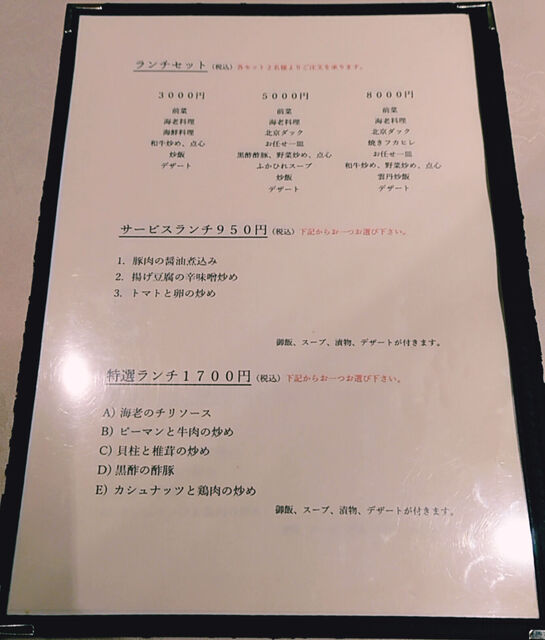 ランチセット（税込）各セット２名様よりご注文を承ります。
３０００円
前菜
海老料理
海鮮料理
和牛炒め、点心
炒飯
デザート
５０００円
前菜
海老料理
北京ダック
お任せ一皿
黒酢酢豚、野菜炒め、点心
ふかひれスープ
炒飯
デザート
８０００円
前菜
海老料理
北京ダック
焼きフカヒレ
お任せ一皿
和牛炒め、野菜炒め、点心
雲丹炒飯
デザート
サービスランチ９５０円（税込）下記からお一つお選び下さい。
1. 豚肉の醤油煮込み
2. 揚げ豆腐の辛味噌炒め
3. トマトと卵の炒め
御飯、スープ、漬物、デザートが付きます。
特選ランチ１７００円（税込）下記からお一つお選び下さい。
A) 海老のチリソース
B) ピーマンと牛肉の炒め
C) 貝柱と椎茸の炒め
D) 黒酢の酢豚
E) カシュナッツと鶏肉の炒め
御飯、スープ、漬物、デザートが付きます。